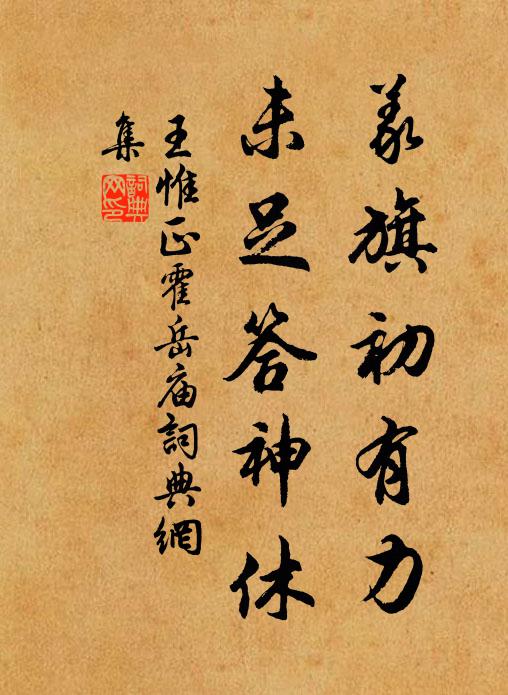 义旗初有力
未足答神休
王惟正霍岳庙詞典網
集
詞典网印